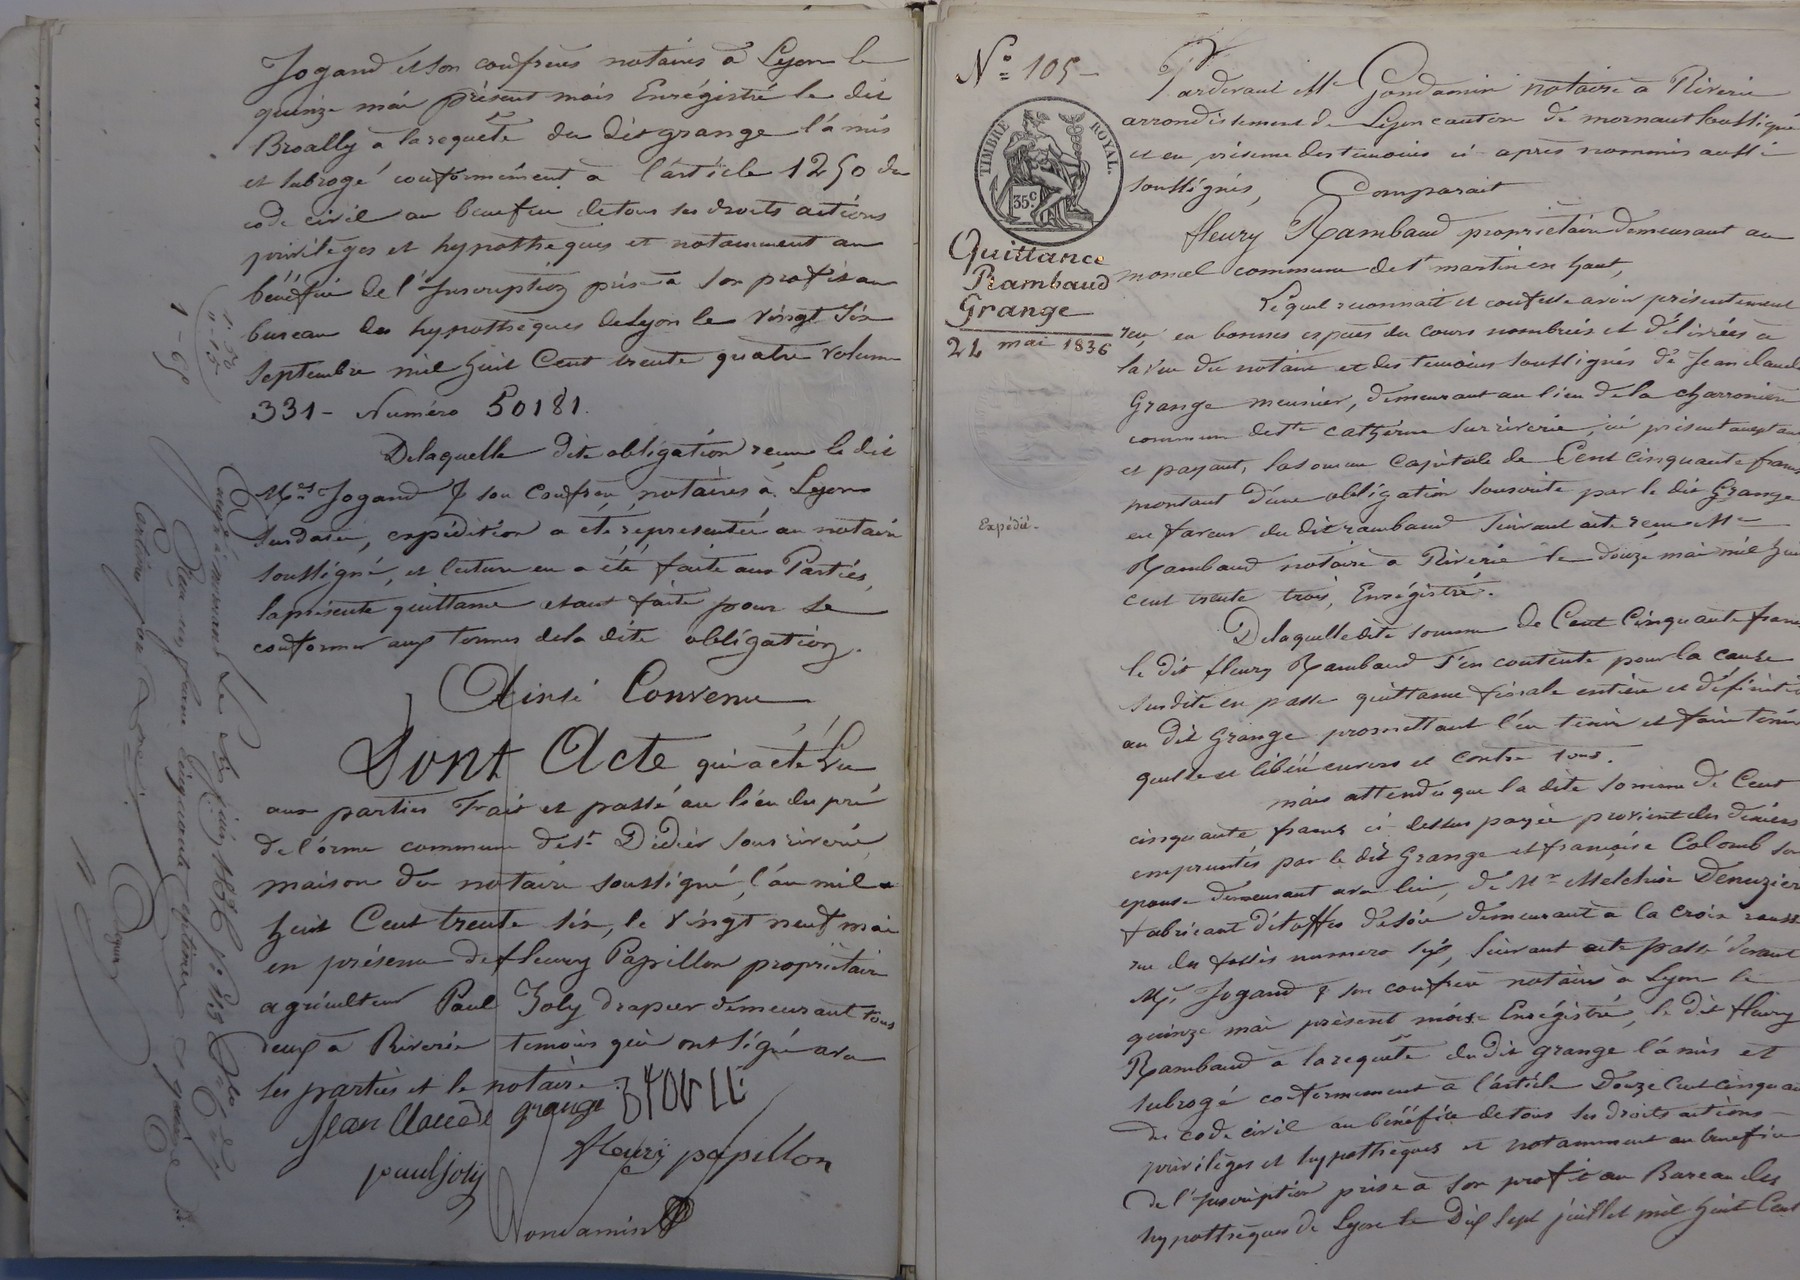 Jogand et son confrères notaires à Lyon le
quinze mai présent mois Enrégistré le dit
Broally à la requête du dit grange l'a mis
et subrogé conformément à l'article 1250 du
code civil au benefice de tous ses droits actions
privilèges et hypothèques et notamment au
bénéfice de l'Inscription prise à son profit au
bureau des hypothèques de Lyon le vingt Six
Septembre mil huit Cent trente quatre volume
331 - Numéro 50181.
De laquelle dite obligation reçue le dit
Mes Jogand & son confrère, notaires à Lyon
susdatée, expédition a été representée au notaire
soussigné, et lecture en a été faite aux Parties,
la présente quittance etant faite pour se
conformer aux termes de la dite obligation.
Ainsi Convenu
Dont Acte qui a été Lu
aux parties Fait et passé au lieu du pré
de l'orme commune de St Didier sous riverie,
maison du notaire soussigné, l'an mil
huit Cent trente six, le vingt neuf mai
en présence de fleury Papillon propriétaire
agriculteur Paul Joly drapier demeurant tous
deux à Riverie temoins qui ont signé avec
les parties et le notaire.
Jean Claude grange
fleury papillon
paul joly
Gondamin
Six juin 1836
N° 105 -
TIMBRE ROYAL.
35 c
Quittance
Rambaud
Grange
mai 1836
Expédié.
Pardevant Me Gondamin notaire à Riverie
arrondissement de Lyon canton de mornant soussigné
et en présence des temoins ci-après nommés aussi
soussignés, Comparait
fleury Rambaud propriétaire demeurant au
moncel commune de St martin en haut,
Lequel reconnait et confesse avoir présentement
reçu en bonnes espèces du cours nombrées et délivrées à
la vue du notaire et des temoins soussignés de Jean claude
Grange meunier, demeurant au lieu de la charronière
commune de Ste Catherine sur riverie, ici présent acceptant
et payant, la somme Capitale de Cent cinquante francs
montant d'une obligation souscrite par le dit Grange
en faveur du dit rambaud suivant acte reçu Me
Rambaud notaire à Riverie le douze mai mil huit
cent trente trois, Enrégistré.
De laquelle dite somme de Cent Cinquante francs
le dit fleury Rambaud s'en contente pour la cause
susdite en passe quittance finale entière et définitive
au dit Grange promettant l'en tenir et faire tenir
quitte et libéré envers et contre tous.
mais attendu que la dite somme de Cent
cinquante francs ci-dessus payée provient des deniers
empruntés par le dit Grange et françoise Colomb son
epouse demeurant avec lui, de Mr Melchior Denuzière
fabricant d'étoffes de soie demeurant à la croix rousse
rue des fossés numero six, suivant acte passé devant
Me Jogand & son confrère notaires à Lyon le
quinze mai présent mois Enrégistré, le dit fleury
Rambaud à la requête du dit grange l'a mis et
subrogé conformément à l'article Douze Cent cinquante
du code civil au bénéfice de tous ses droits actions
privilèges et hypothèques et notamment au benefice
de l'Inscription prise à son profit au Bureau des
hypothèques de Lyon le Dix Sept juillet mil huit Cent